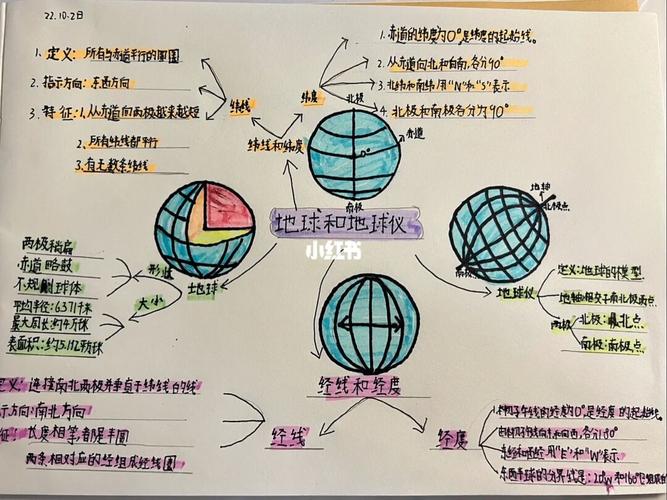 22.10.2日
1. 定义：所有与赤道平行的圆圈
2. 指示方向：东西方向
3. 特征：1.从赤道向两极越来越短
2.所有纬线都平行
3.有无数条纬线
纬线
纬度
纬线和纬度
1.赤道的纬度为0°是纬度的起始线。
2.从赤道向北和向南,各分90°
3.北纬和南纬用"N"和"S"表示
4.北极和南极各分为90°
北极
赤道
0°
南极
地球和地球仪
小红书
地球
形状
两极稍扁
赤道略鼓
不规则球体
大小
平均半径:6371千米
最大周长:约4万
表面积:约5.1亿
地轴
北极点
南极
地球仪
定义:地球的模型
地轴相交于南北极两点
两极
北极:最北点
南极:南极点
经线和经度
经线
定义：连接南北两极并垂直于纬线的线
示方向:南北方向
征：长度相等,都是半圆
两条相对应的经组成经线圈
经度
1.本初子午线的经度为0°是经度的起始线。
向东向西,各分180°
东经和西经用"E"和"W"表示
东西半球的分界线是:20°W和160°E组成